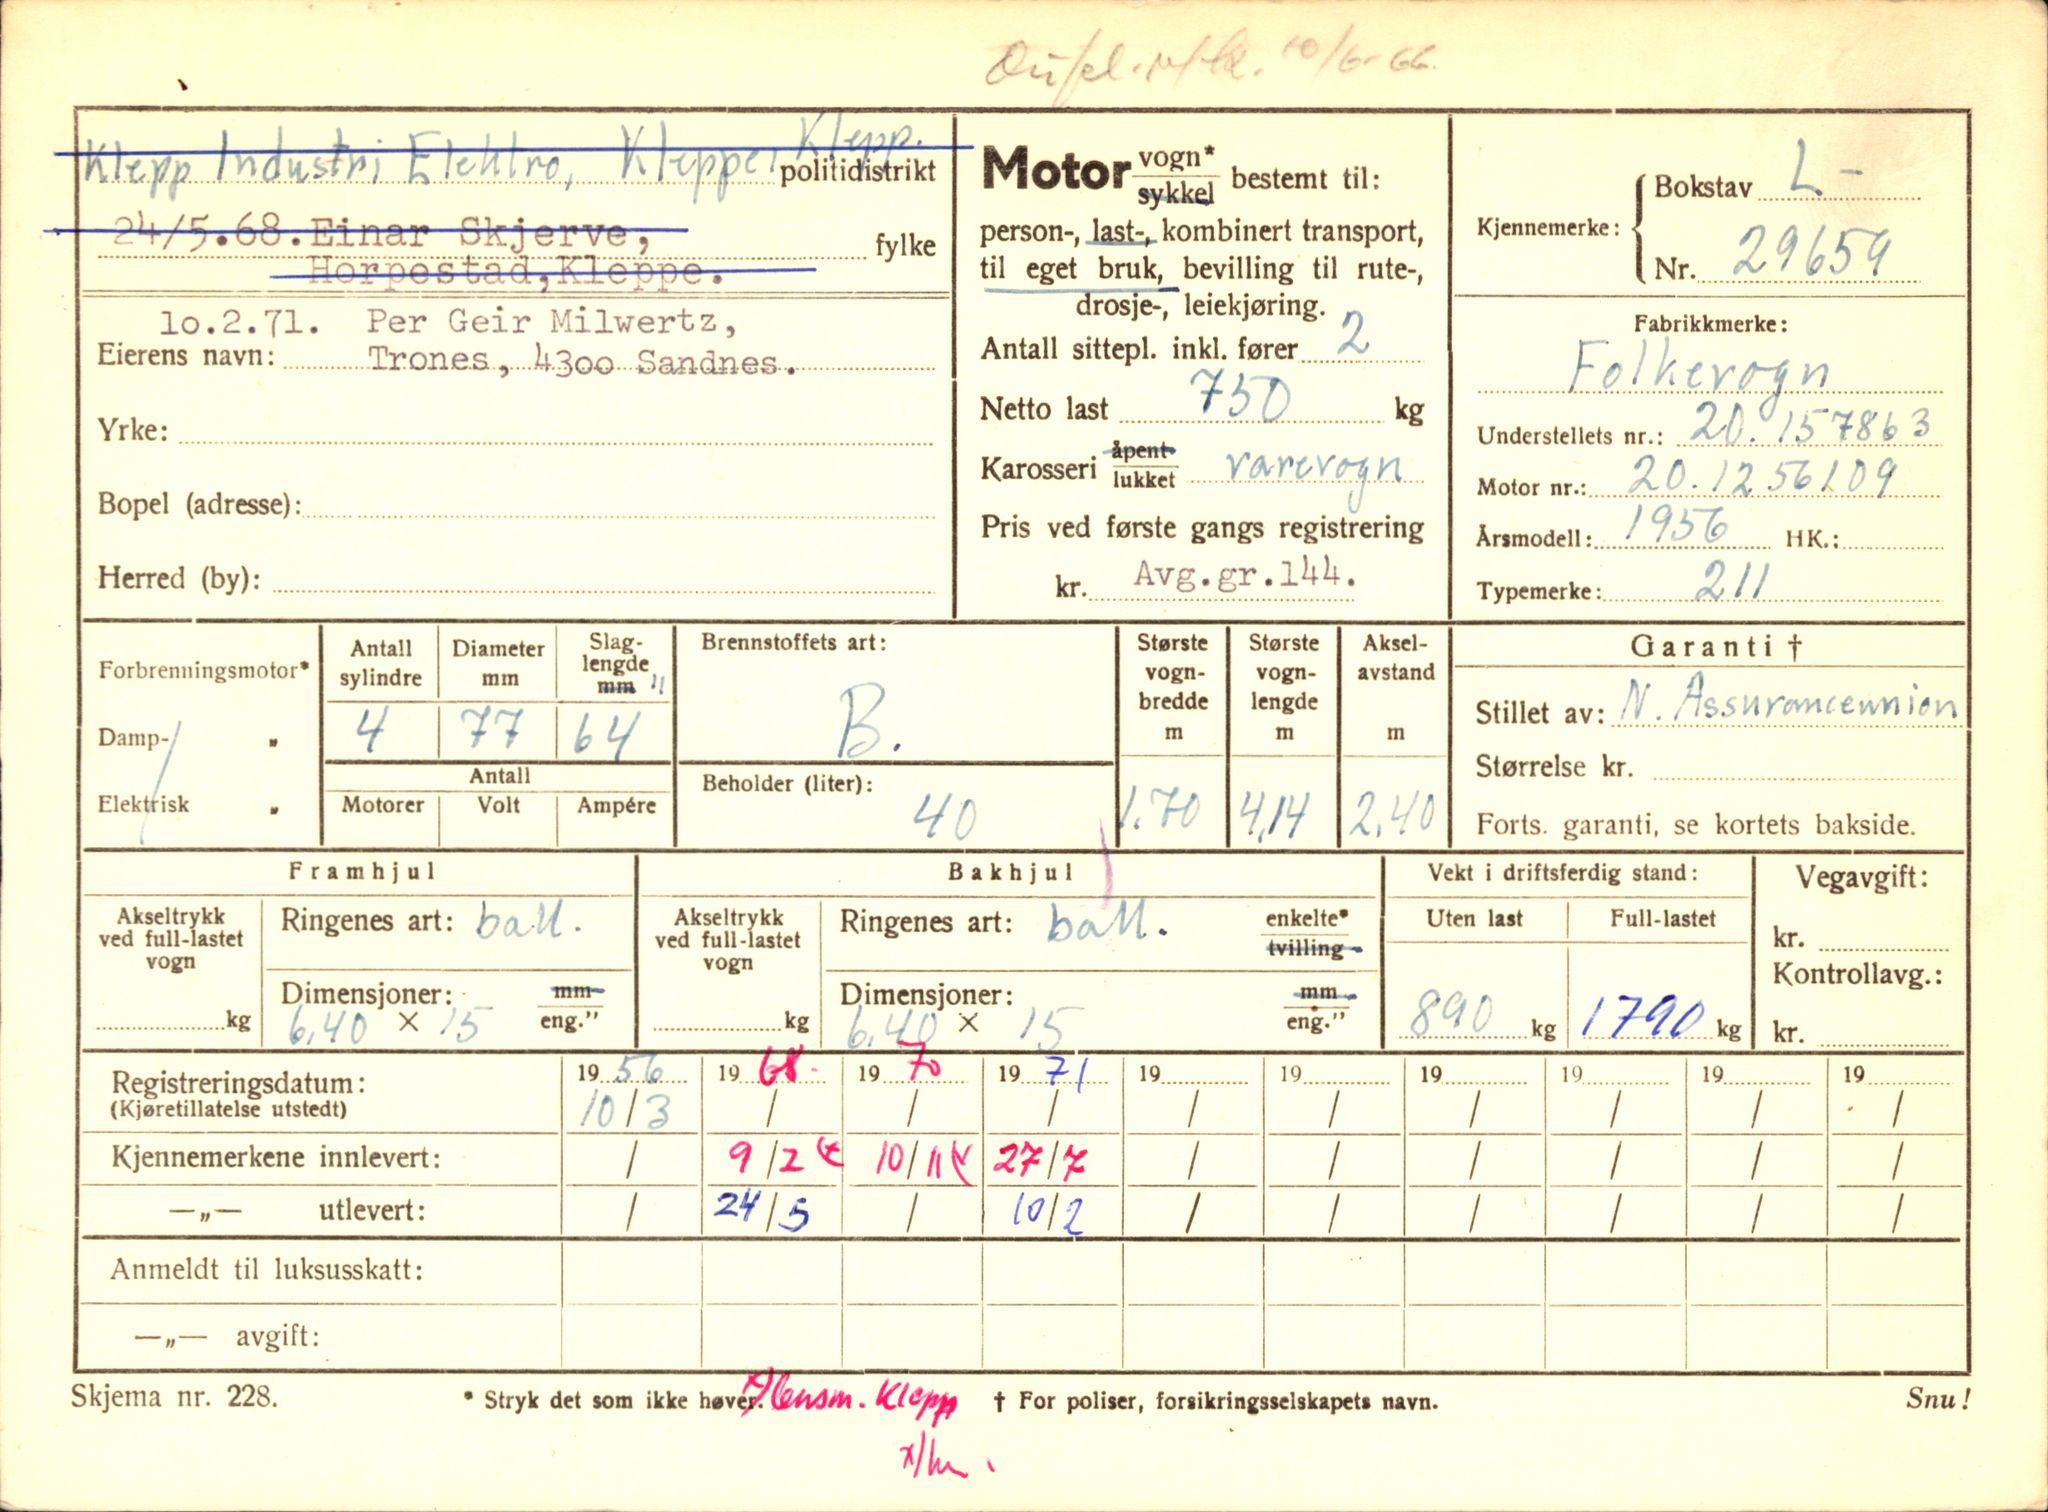 10/6-66.
Klepp Industri Elektro, Kleppe, Klepp.
politidistrikt
24/5.68. Einar Skjerve,
fylke
Horpestad, Kleppe.
10.2.71. Per Geir Milwertz,
Eierens navn: Trones, 4300 Sandnes.
Yrke:
Bopel (adresse):
Herred (by):
Motor vogn* sykkel bestemt til:
person-, last-, kombinert transport,
til eget bruk, bevilling til rute-,
drosje-, leiekjøring.
Antall sittepl. inkl. fører 2
Netto last 750 kg
Karosseri åpent lukket varevogn
Pris ved første gangs registrering
kr. Avg.gr.144.
Kjennemerke: Bokstav L-
Nr. 29659
Fabrikkmerke:
Folkevogn
Understellets nr.: 20.157863
Motor nr.: 20.1256109
Årsmodell: 1956 HK.:
Typemerke: 211
Forbrenningsmotor*
Damp- „
Elektrisk „
Antall sylindre
Diameter mm
Slag-lengde mm "
4 77 64
Antall
Motorer Volt Ampére
Brennstoffets art:
B.
Beholder (liter):
40
Største vogn-bredde m
1.70
Største vogn-lengde m
4,14
Aksel-avstand m
2,40
Garanti †
Stillet av: N. Assuranceunion
Størrelse kr.
Forts. garanti, se kortets bakside.
Framhjul
Akseltrykk ved full-lastet vogn
kg
Ringenes art: ball.
Dimensjoner: mm eng."
6,40 × 15
Bakhjul
Akseltrykk ved full-lastet vogn
kg
Ringenes art: ball. enkelte* tvilling
Dimensjoner: mm eng."
6,40 × 15
Vekt i driftsferdig stand:
Uten last Full-lastet
890 kg 1790 kg
Vegavgift:
kr.
Kontrollavg.:
kr.
Registreringsdatum: 19 56 19 68. 19 70 19 71 19 19 19 19 19 19
(Kjøretillatelse utstedt) 10/3 / / / / / / / / /
Kjennemerkene innlevert: / 9/2 10/11 27/7 / / / / / /
—„— utlevert: / 24/5 / 10/2 / / / / / /
Anmeldt til luksusskatt:
—„— avgift:
Skjema nr. 228.
* Stryk det som ikke høver.
x) lensm. Klepp
† For poliser, forsikringsselskapets navn.
Snu!